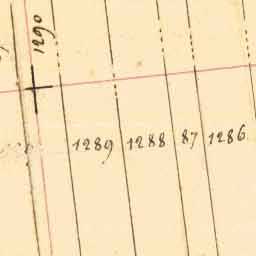 1290
1289 1288 87 1286